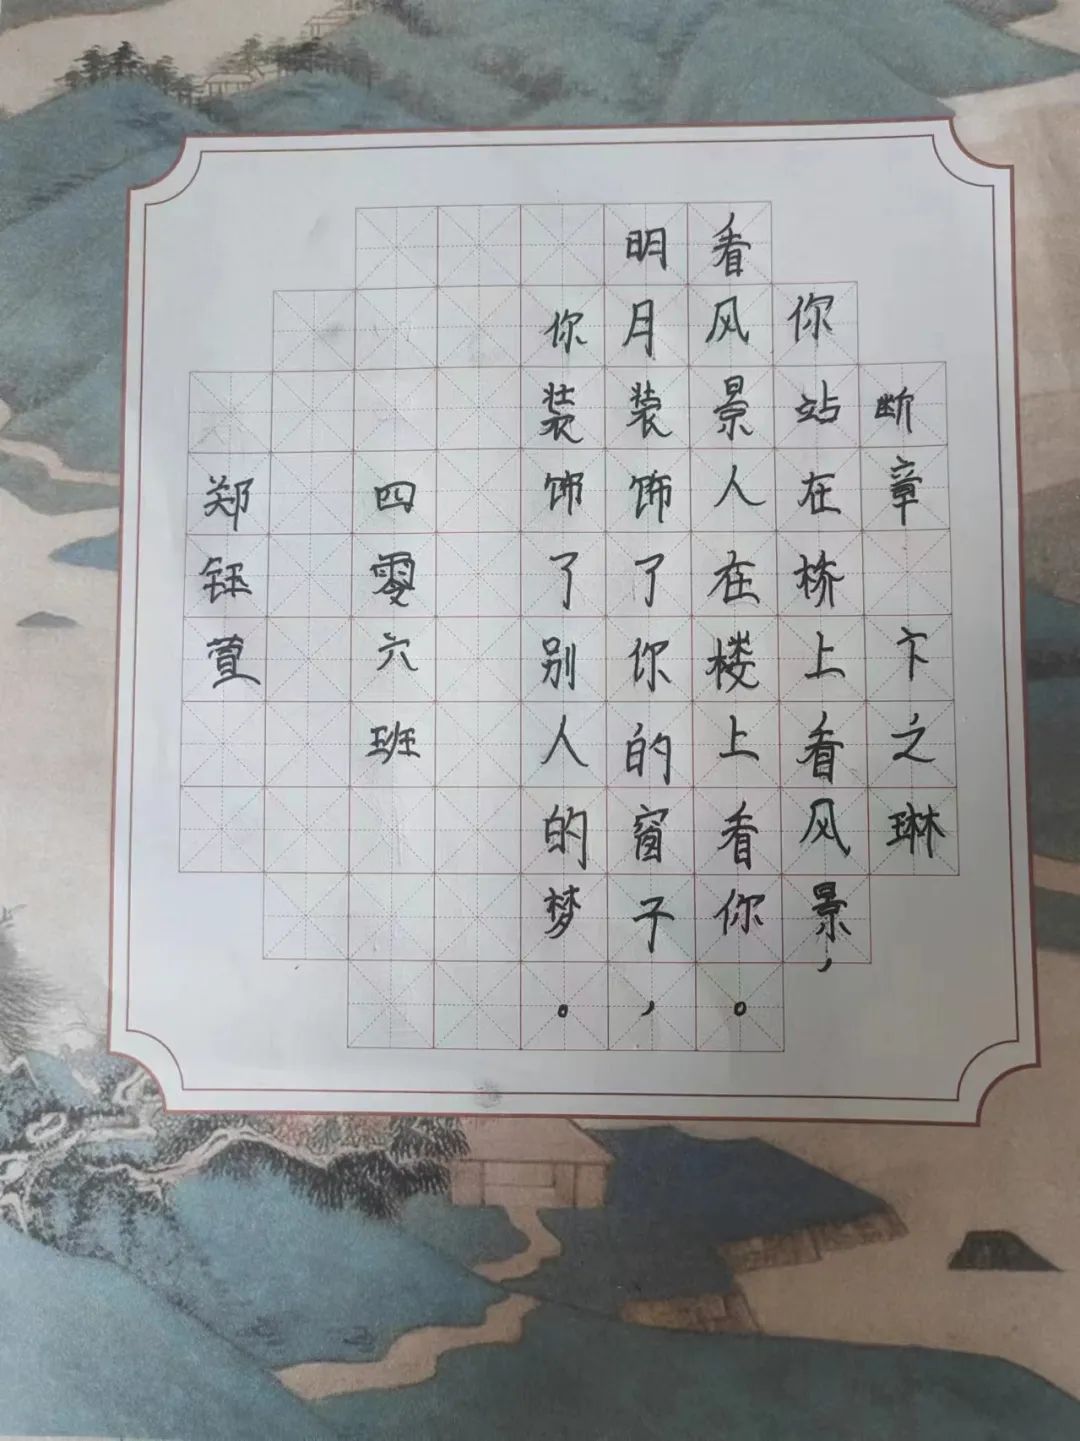 断章 卞之琳
你站在桥上看风景，
看风景人在楼上看你。
明月装饰了你的窗子，
你装饰了别人的梦。
四零六班
郑钰萱